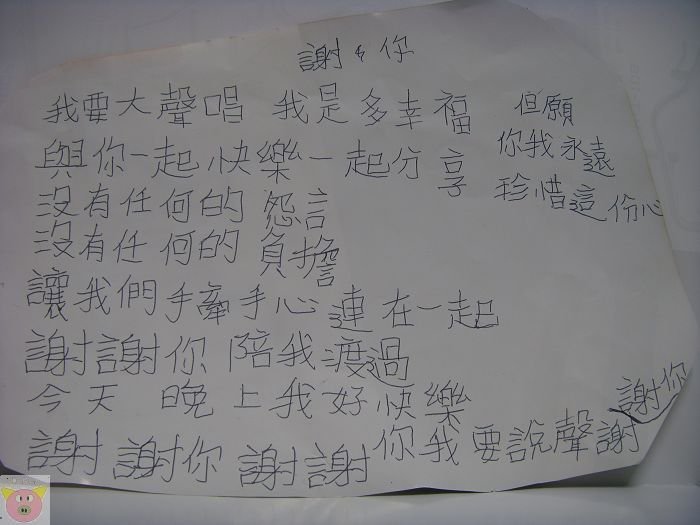 謝々你
我要大聲唱 我是多幸福
與你一起快樂一起分享
沒有任何的怨言
沒有任何的負擔
讓我們手牽手心連在一起
謝謝你 陪我渡過
今天 晚上我好快樂
謝謝你 謝謝你我要說聲謝謝你
但願
你我永遠
珍惜這份心